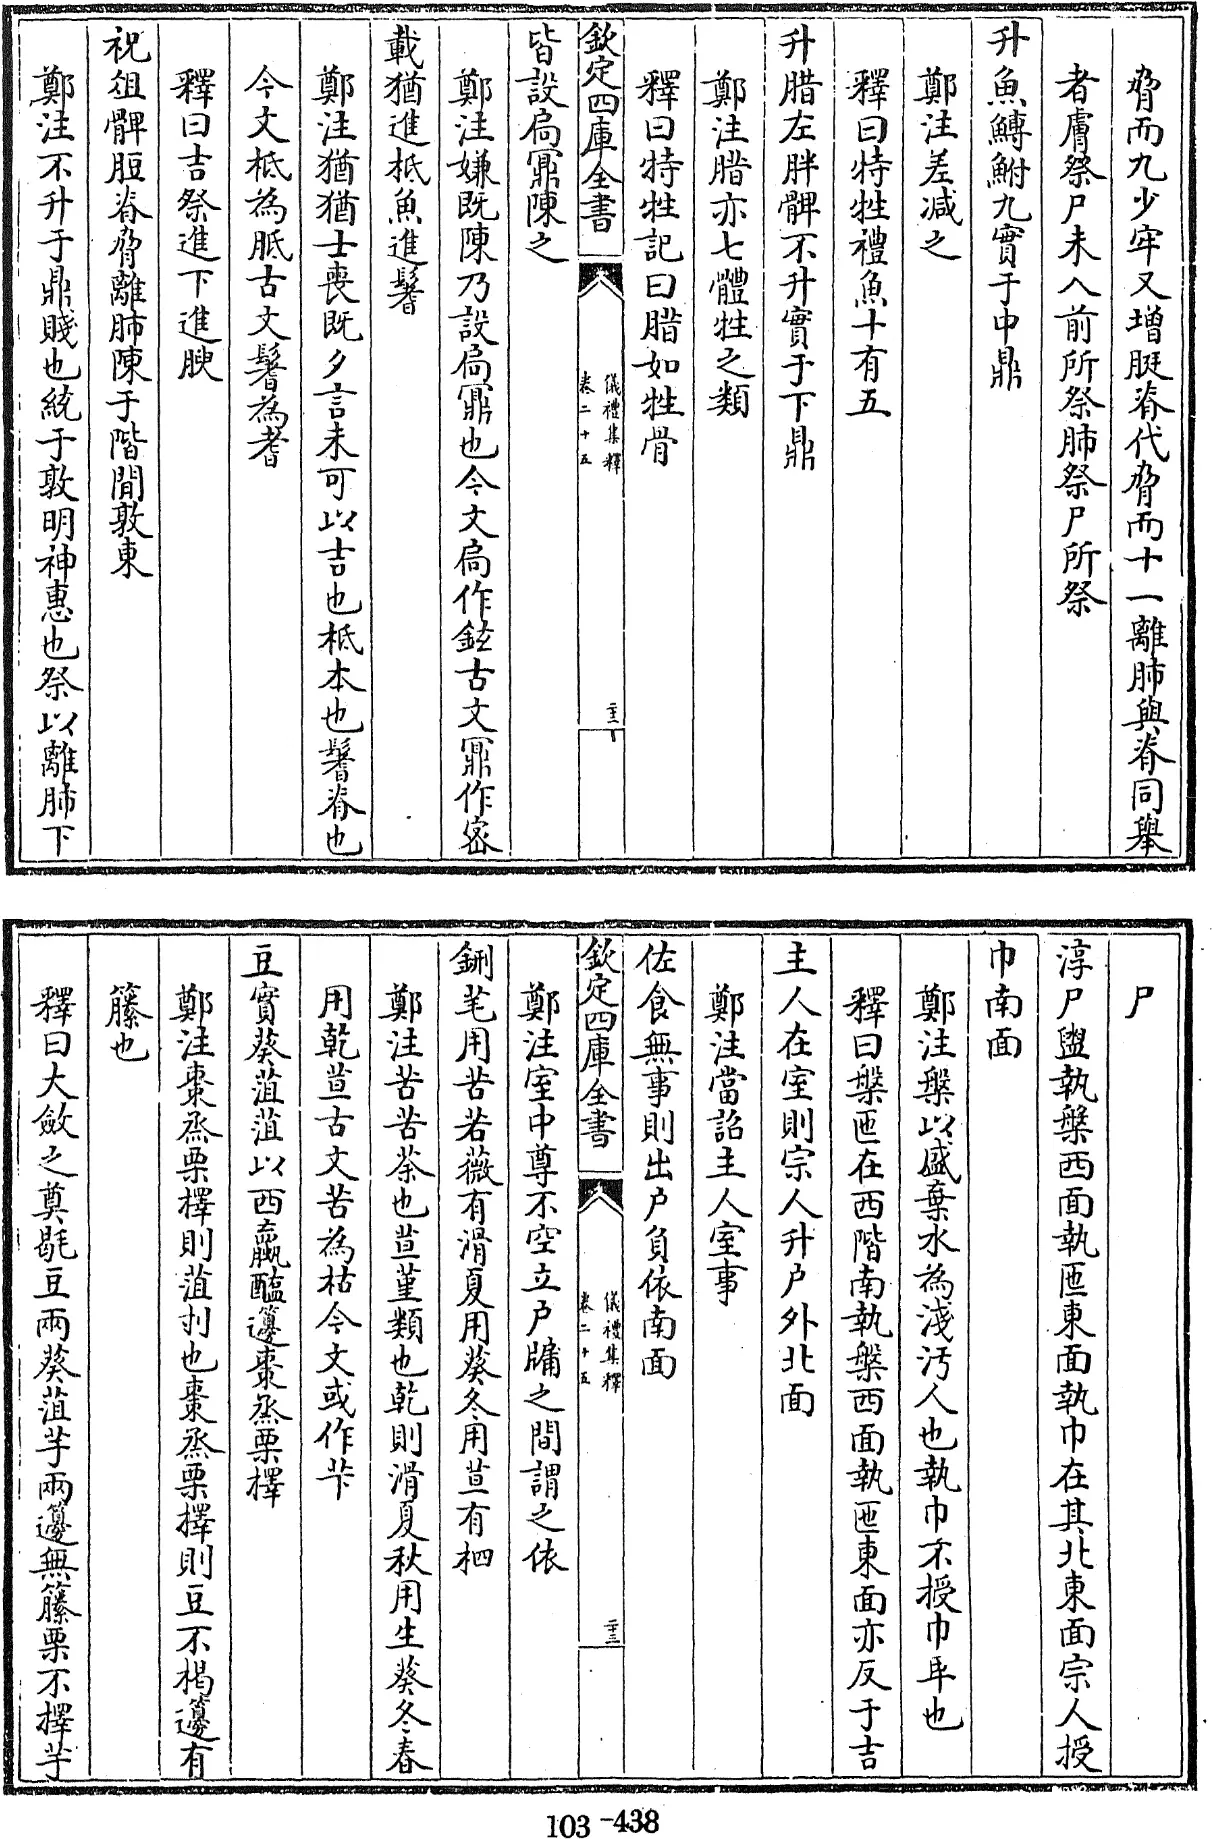 脅而九少牢又增脡脊代脅而十一離肺與脊同舉
者膚祭尸未入前所祭肺祭尸所祭
升魚鱄鮒九實于中鼎
鄭注差減之
釋曰特牲禮魚十有五
升腊左胖髀不升實于下鼎
鄭注腊亦七體牲之類
釋曰特牲記曰腊如牲骨
欽定四庫全書
儀禮集釋
卷二十五
皆設扃鼏陳之
鄭注嫌既陳乃設扃鼏也今文扃作鉉古文鼏作密
載猶進柢魚進鬐
鄭注猶猶士喪既夕言未可以吉也柢本也鬐脊也
今文柢為胝古文鬐為耆
釋曰吉祭進下進腴
祝俎髀脰脊脅離肺陳于階間敦東
鄭注不升于鼎賤也統于敦明神惠也祭以離肺下
尸
淳尸盥執槃西面執匜東面執巾在其北東面宗人授
巾南面
鄭注槃以盛棄水為淺汚人也執巾不授巾卑也
釋曰槃匜在西階南執槃西面執匜東面亦反于吉
主人在室則宗人升户外北面
鄭注當詔主人室事
佐食無事則出户負依南面
欽定四庫全書
儀禮集釋
卷二十五
二十三
鄭注室中尊不空立户牖之間謂之依
鉶芼用苦若薇有滑夏用葵冬用荁有柶
鄭注苦苦荼也荁堇類也乾則滑夏秋用生葵冬春
用乾荁古文苦為枯今文或作芐
豆實葵菹菹以西蠃醢籩棗烝栗擇
鄭注棗烝栗擇則菹刌也棗烝栗擇則豆不楬籩有
籐也
釋曰大斂之奠毼豆兩葵菹芋兩籩無籐栗不擇芋
103-438